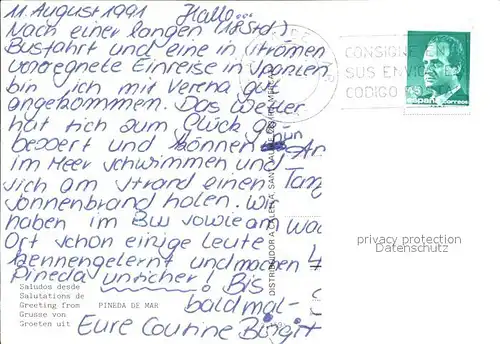 11. August 1991 Hallo...
Nach einer langen (18 Std.)
Busfahrt und eine in Strömen
vorregnete Einreise in Spanien
bin ich mit Verena gut
angekommen. Das Wetter
hat sich zum Glück ge-
bessert und können nun
im Meer schwimmen und
sich am Strand einen
Sonnenbrand holen. Wir
haben im Bus sowie am
Ort schon einige Leute
kennengelernt und machen
Pineda unsicher! Bis
bald mal-
Eure Cousine Birgit
Saludos desde
Salutations de
Greeting from PINEDA DE MAR
Grusse von
Groeten uit
CONSIGNE EN
SUS ENVIOS EL
CODIGO
45
España correos
privacy protection
Datenschutz